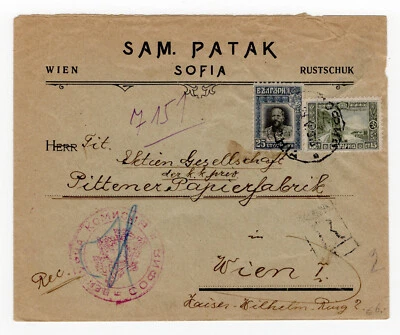 SAM. PATAK
WIEN SOFIA RUSTSCHUK
715
БЪЛГАРИЯ
25
HERR Tit.
Aktien Gesellschaft
der k.k. priv
Pittener Papierfabrik
КОМИСИЯ
СОФИЯ
Rec.
Wien I.
Kaiser-Wilhelm-Ring 2.
2